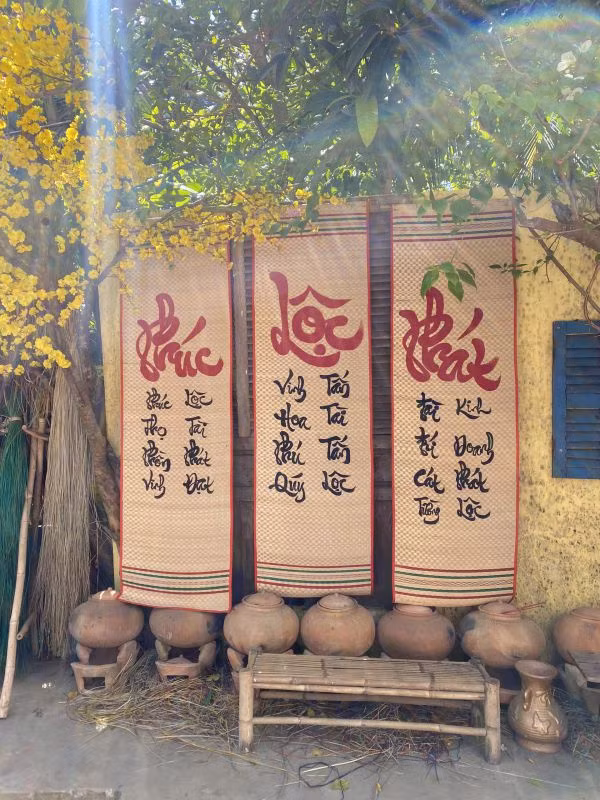 Phúc
Phúc Thọ Phồn Vinh
Lộc Tài Phát Đạt
Lộc
Vinh Hoa Phú Quý
Tấn Tài Tấn Lộc
Phát
Cát Tường
Kinh Doanh Phát Lộc